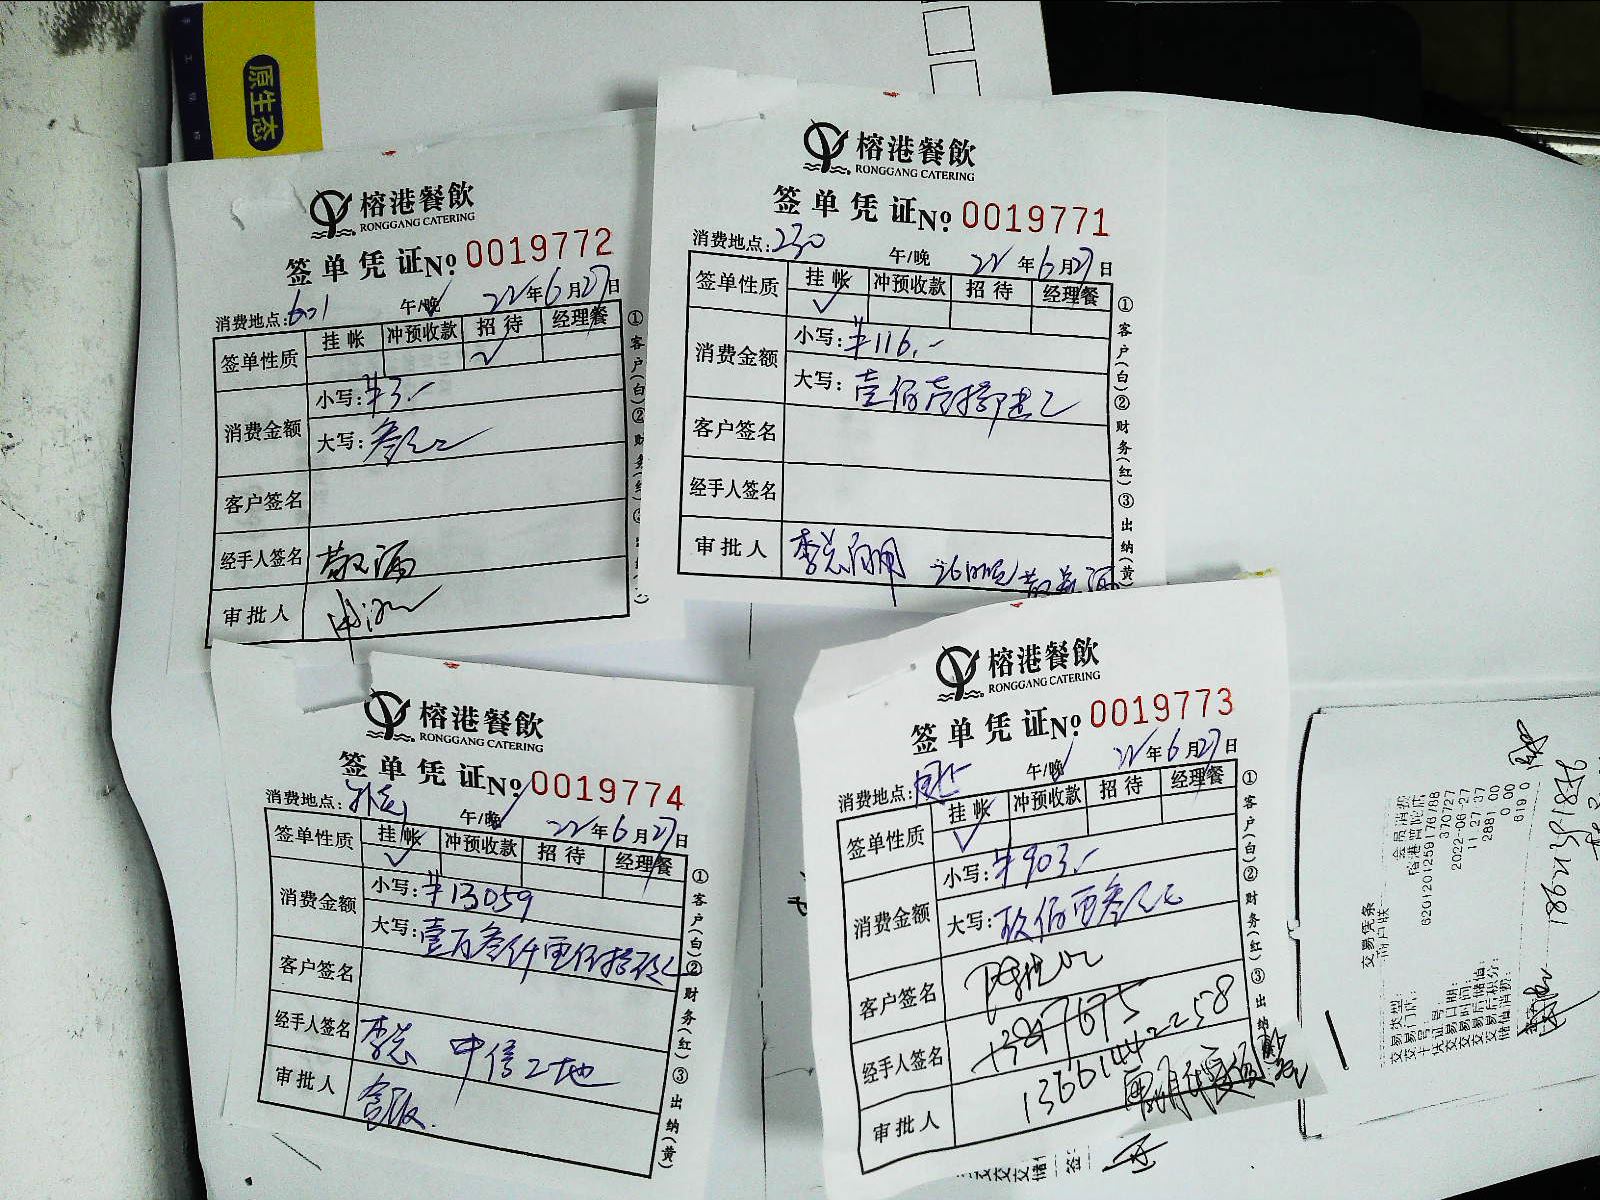 原生态
榕港餐飲
RONGGANG CATERING
签单凭证 No. 0019772
消费地点: 601 午/晚 22年6月27日
签单性质 挂帐 冲预收款 招待 经理餐
✓
消费金额 小写: ¥3.-
大写: 叁元
客户签名
经手人签名
审批人
①客户(白)②财务(红)
榕港餐飲
RONGGANG CATERING
签单凭证 No. 0019771
消费地点: 230 午/晚 22年6月27日
签单性质 挂帐 冲预收款 招待 经理餐
✓
消费金额 小写: ¥116.-
大写: 壹佰壹拾陆元
客户签名
经手人签名
审批人
①客户(白)②财务(红)③出纳(黄)
榕港餐飲
RONGGANG CATERING
签单凭证 No. 0019774
消费地点: 午/晚 22年6月27日
签单性质 挂帐 冲预收款 招待 经理餐
✓
消费金额 小写: ¥13059
大写: 壹万叁仟零佰拾
客户签名
经手人签名 中信工地
审批人
①客户(白)②财务(红)③出纳(黄)
榕港餐飲
RONGGANG CATERING
签单凭证 No. 0019773
消费地点: 午/晚 22年6月27日
签单性质 挂帐 冲预收款 招待 经理餐
✓
消费金额 小写: ¥903.-
大写: 玖佰零叁元
客户签名
经手人签名
13661442258
审批人
①客户(白)②财务(红)③出纳
交易凭条
商户联
交易类型: 会员消费
交易门店: 榕港普陀店
卡号: 6201201259176788
凭证号: 370727
交易日期: 2022-06-27
交易时间: 11 27 37
交易后储值: 2881.00
交易后积分: 0.00
储值消费: 619 0